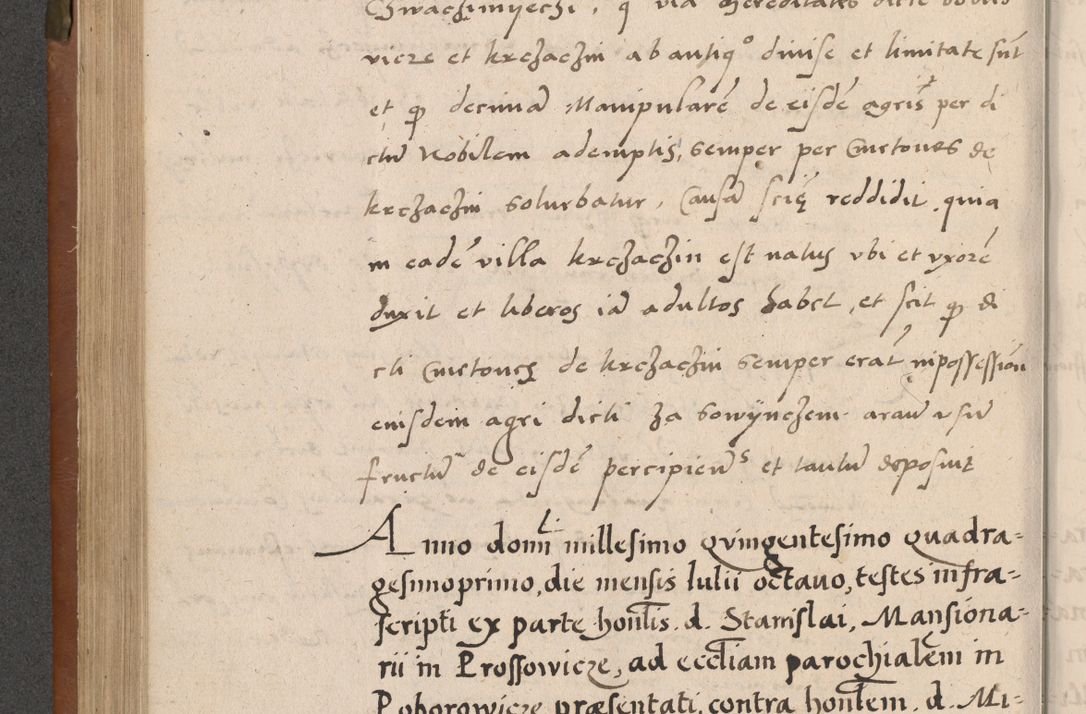 Chwaczimyeczi, q via hereditates dicte bobus
vicze et krczaczin ab antiq° diuise et limitate sūt
et qp decimā Manipularē de eisdē agris per di
ctū Nobilem ademptis, semper per Cmetones de
krczaczin soluebatur, Causā scię reddidit, quia
in eadē villa krczaczin est natus vbi et vxorē
duxit et liberos iā adultos habet, et scit qp di
cti Cmetones de krczaczin semper erāt in possessiōn
eiusdem agri dicti Za Sowynczem araū vsū
fructū de eisdē percipieñs et tantū deposuit
Anno domī millesimo qvingentesimo quadra=
gesimoprimo, die mensis Iulii octauo, testes infra=
scripti ex parte honlis. d. Stanislai, Mansiona=
rii in Prossowicze, ad eccliam parochialem in
Poborowicze præsentati, contra honlem. d. Mi=